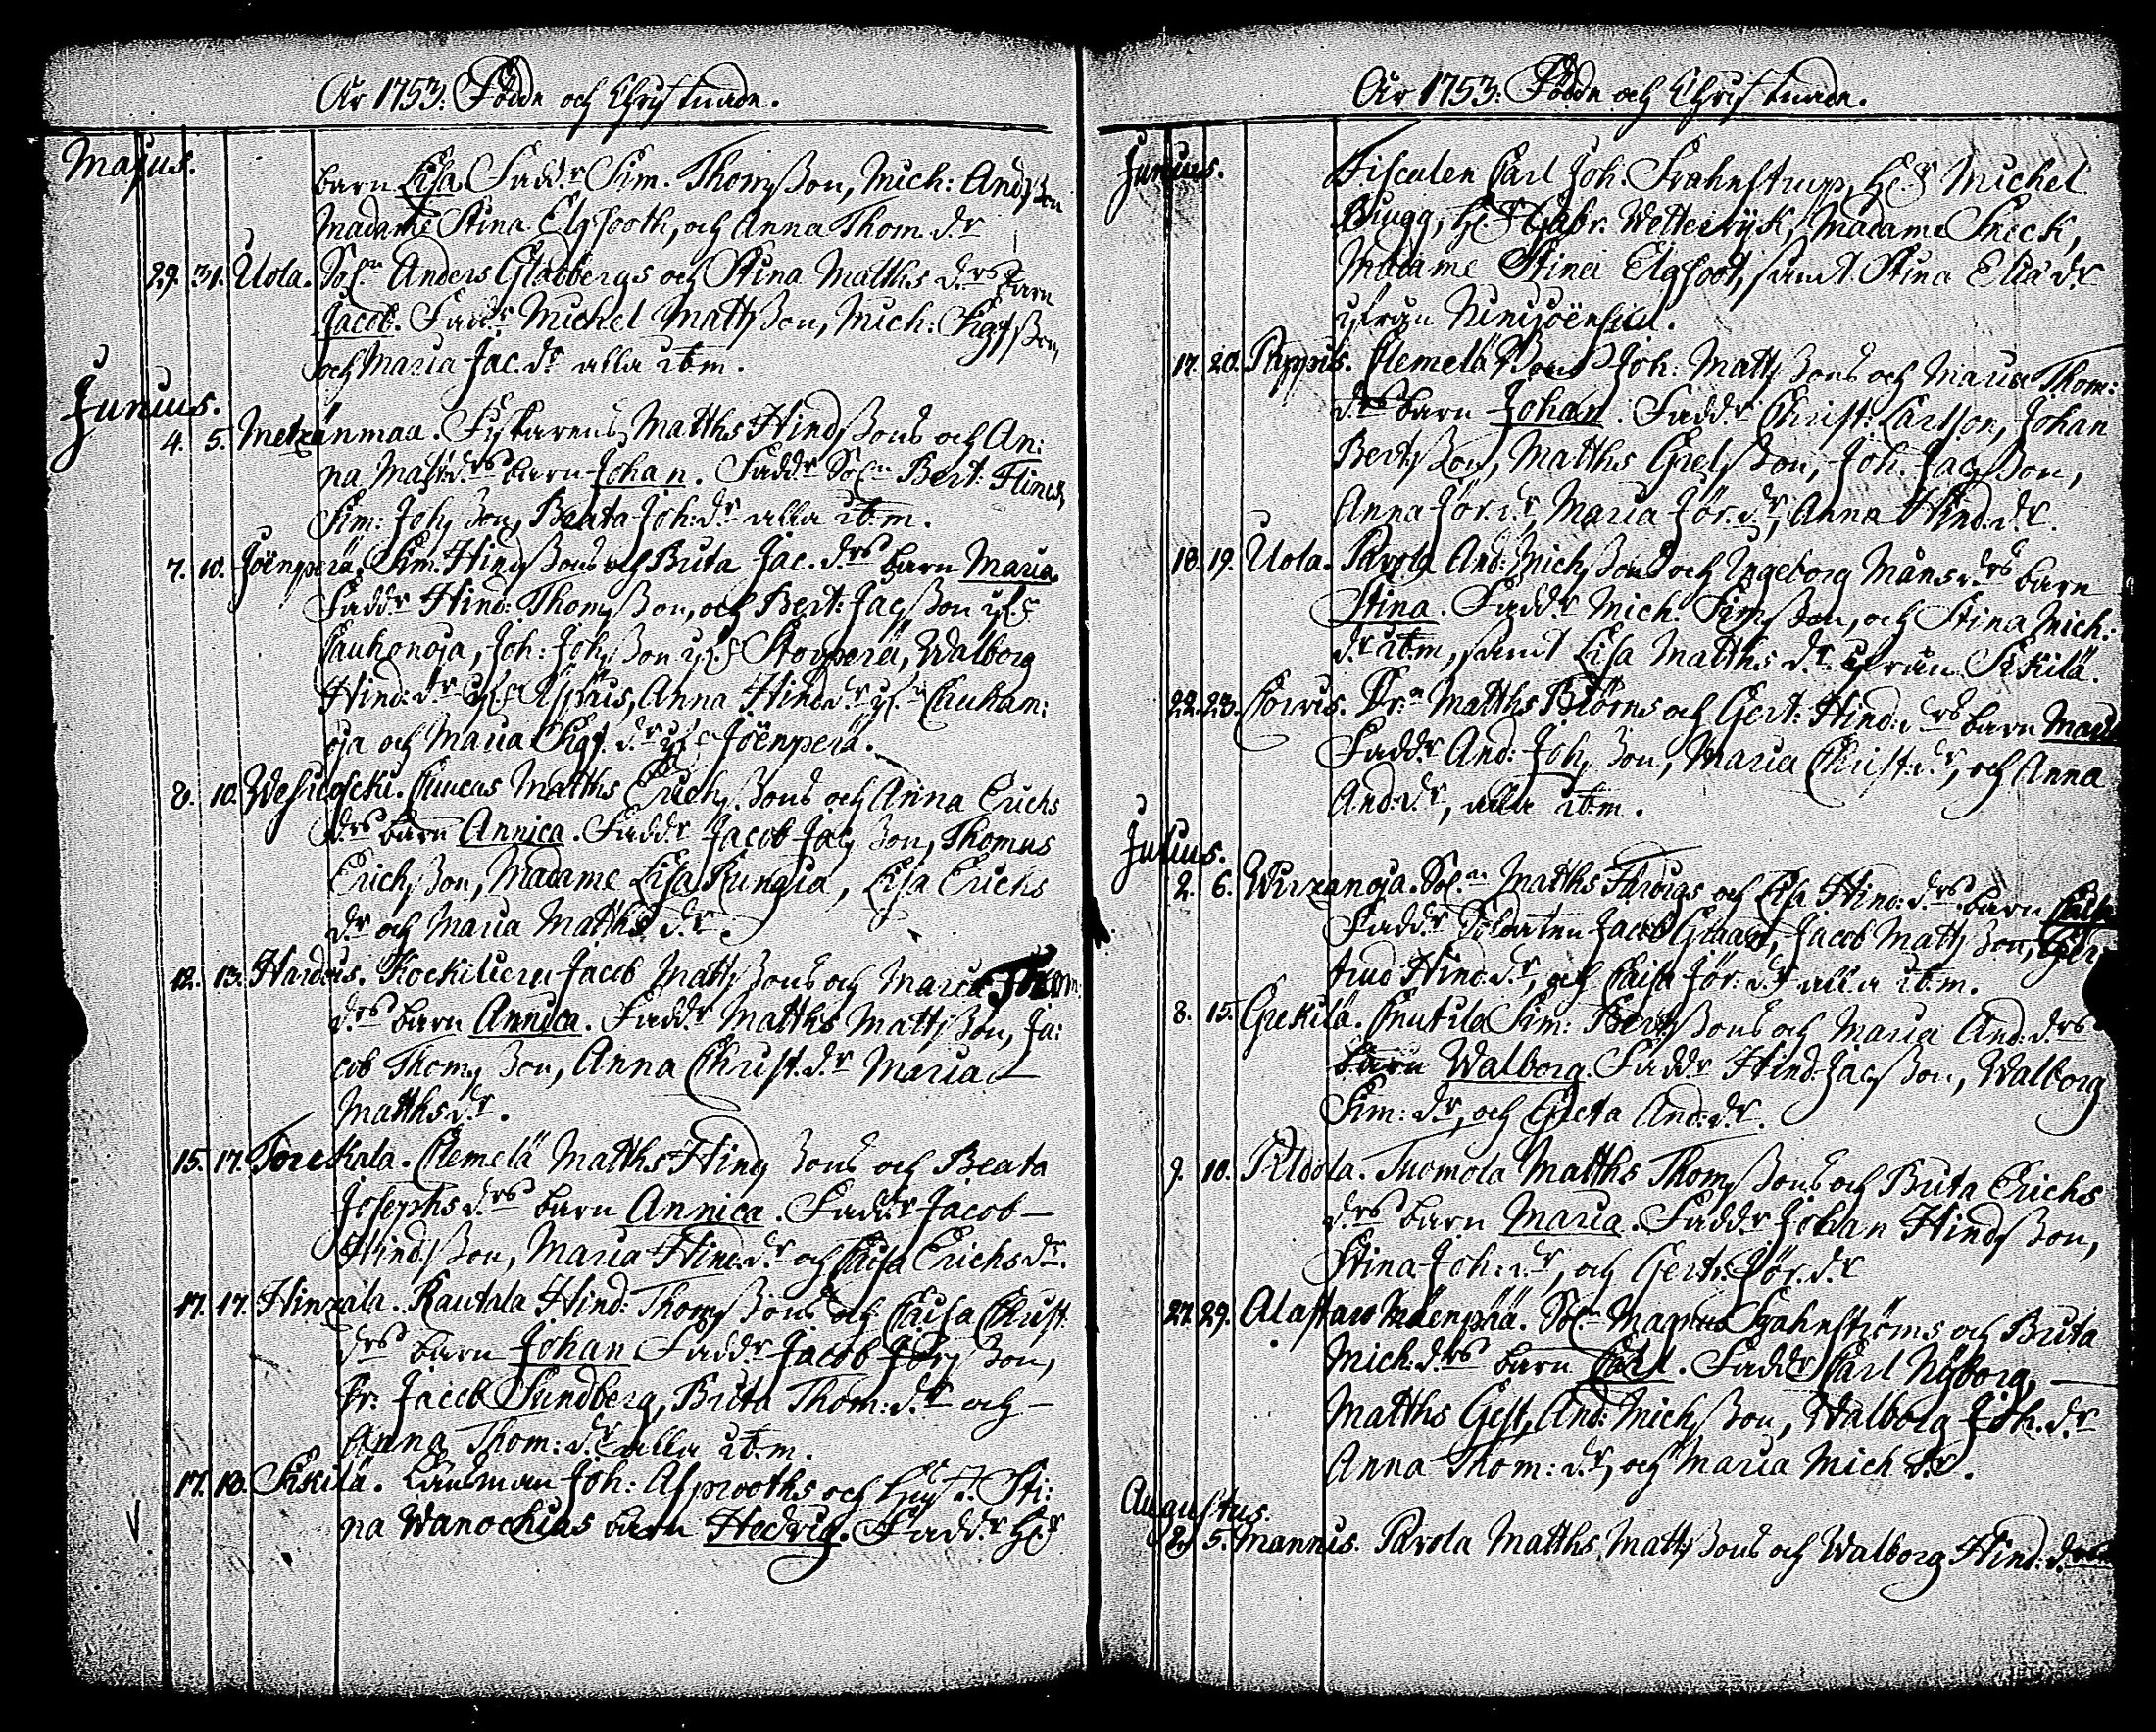 År 1753: Födde och Christnade.
Majus.
barn Lisa. Fadd:r Sim. Thomsson, Mich: Andsson
Madame Stina Elgfooth, och Anna Thom. d:r
29. 31. Uola. Sol:n Anders Gladbergs och Stina Matths d:rs barn
Jacob. Fadd:r Michel Mattsson, Mich:
och Maria Jac. d:r alla ib:m.
Junius.
4. 5. Metzänmaa. Matths Hindssons och An:
na Matth: d:rs barn Johan. Fadd:r Sol:n Bert:
Sim: Johsson, Beata Joh: d:r alla ib:m.
7. 10. Jöenperä. Sim. Hindssons och Brita Jac. d:rs barn Maria.
Fadd:r Hind: Thomsson, och Bert: Jacsson
Cauhonoja, Joh: Johsson Walborg
Hind: d:r Anna Hind: d:r Cauhan:
oja och Maria d:r Jöenperä.
8. 10. Matths Erichssons och Anna Erichs
d:rs barn Annica. Fadd:r Jacob Jacsson, Thomas
Erichsson, Madame Lisa Lisa Erichs
d:r och Maria Matths d:r.
12. 13. Jacob Mattssons och Maria Thom:
d:rs barn Annica. Fadd:r Matths Mattsson, Ja:
cob Thomsson, Anna Christ. d:r Maria
Matths d:r.
15. 17. Torekala. Clemelä Matths Hindssons och Beata
Josephs d:rs barn Annica. Fadd:r Jacob
Hindsson, Maria Hind. d:r och Caisa Erichs d:r.
17. 17. Hinzala. Rautala Hind: Thomssons och Caisa Christ.
d:rs barn Johan Fadd:r Jacob Jörsson,
Dr: Jacob Sundberg, Brita Thom: d:r och
Anna Thom: d:r alla ib:m.
17. 18. Sikilä. Länsman Joh: Alprooths och Sti:
na Wanochias barn Hedvig. Fadd:r H:r
År 1753: Födde och Christnade.
Junius.
Fiscalen Carl Joh. H:r Michel
Brugg, H:r Gabr. Wetterwijk, Madame Sneck,
Madame Stina Elgfoot, samt Stina d:r
ifrån
17. 20. Pippis. Clemelä Joh: Mattssons och Maria Thom:
d:rs barn Johan. Fadd:r Christ: Carlsson, Johan
Bertsson, Matths Grelsson, Joh. Jacsson,
Anna Jör. d:r, Maria Jör. d:r, Anna Hind: d:r.
18. 19. Uola. Pavola And: Michssons och Ingeborg Måns d:rs barn
Stina. Fadd:r Mich. Simsson, och Stina Mich:
d:r ib:m, samt Lisa Matths d:r ifrån Sikilä.
22. 23. Corvis. Dr:n Matths Biörns och Gert: Hind: d:rs barn Maria
Fadd:r And: Johsson, Maria Christ: d:r, och Anna
And: d:r, alla ib:m.
Julius.
2. 6. Wirzanoja. Sol:n Matths och Lisa Hind: d:rs barn Caisa
Fadd:r Soldaten Jacob Jacob Mattsson, Ger
trud Hind: d:r, och Caisa Jör: d:r alla ib:m.
8. 15. Grekilä. Cnutila Sim: Bertssons och Maria And: d:rs
barn Walborg. Fadd:r Hind: Jacsson, Walborg
Sim: d:r, och Greta And: d:r.
9. 10. Pildola. Tuomola Matths Thomssons och Brita Erichs
d:rs barn Maria. Fadd:r Johan Hindsson,
Stina Joh: d:r, och Gert: Jör. d:r
27. 29. Alastaro Mäenpää. Sol:n Magnus och Brita
Mich: d:rs barn Carl. Fadd:r Carl Nyborg,
Matths Gest, And: Michsson, Walborg Joh. d:r
Anna Thom: d:r, och Maria Mich d:r.
Augustus.
2. 5. Mannis. Pavola Matths Mattssons och Walborg Hind: d:rs